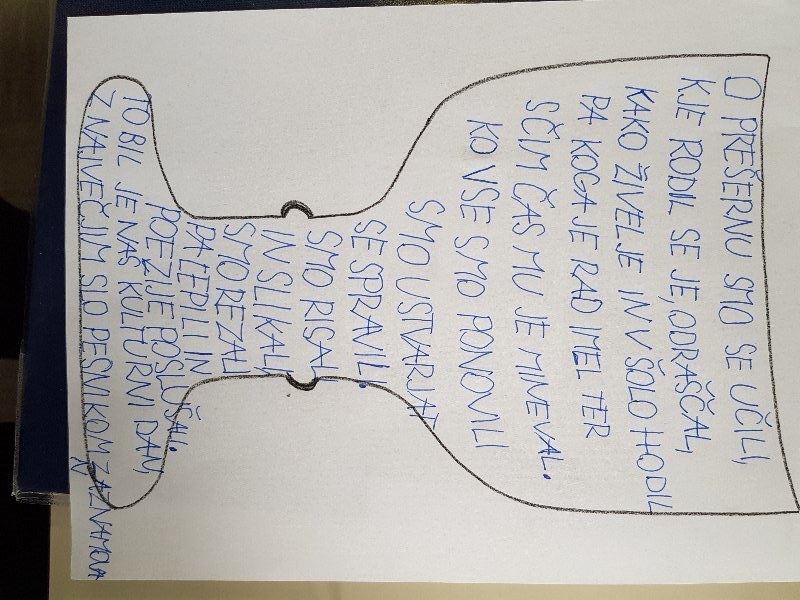 O PREŠERNU SMO SE UČILI,
KJE RODIL SE JE, ODRAŠČAL,
KAKO ŽIVEL JE IN V ŠOLO HODIL
PA KOGA JE RAD IMEL TER
S ČIM ČAS MU JE MINEVAL.
KO VSE SMO PONOVILI
SMO USTVARJAT
SE SPRAVILI.
SMO RISALI
IN SLIKALI,
SMO REZALI
PA LEPILI IN
POEZIJE POSLUŠALI.
TO BIL JE NAŠ KULTURNI DAN,
Z NAJVEČJIM SLO PESNIKOM